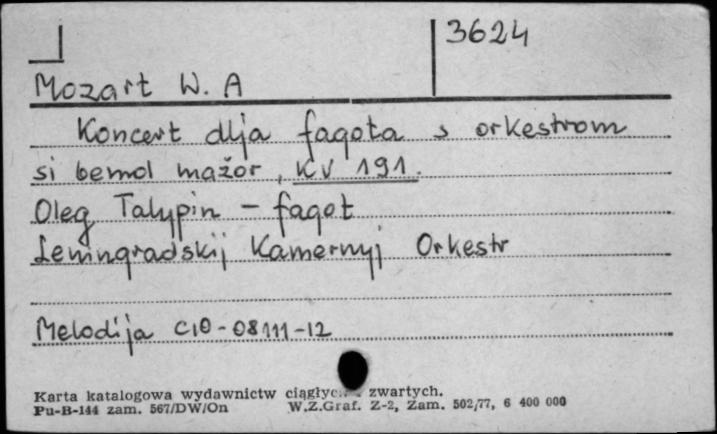 3624
Mozart W. A
Koncert dlja fagota s orkestrom
si bemol mažor, KV 191.
Oleg Talypin - fagot
Leningradskij Kamernyj Orkestr
Melodija C10-08111-12
Karta katalogowa wydawnictw zwartych.
Pu-B-144 zam. 567/DW/On W.Z.Graf. Z-2, Zam. 502/77, 6 400 000